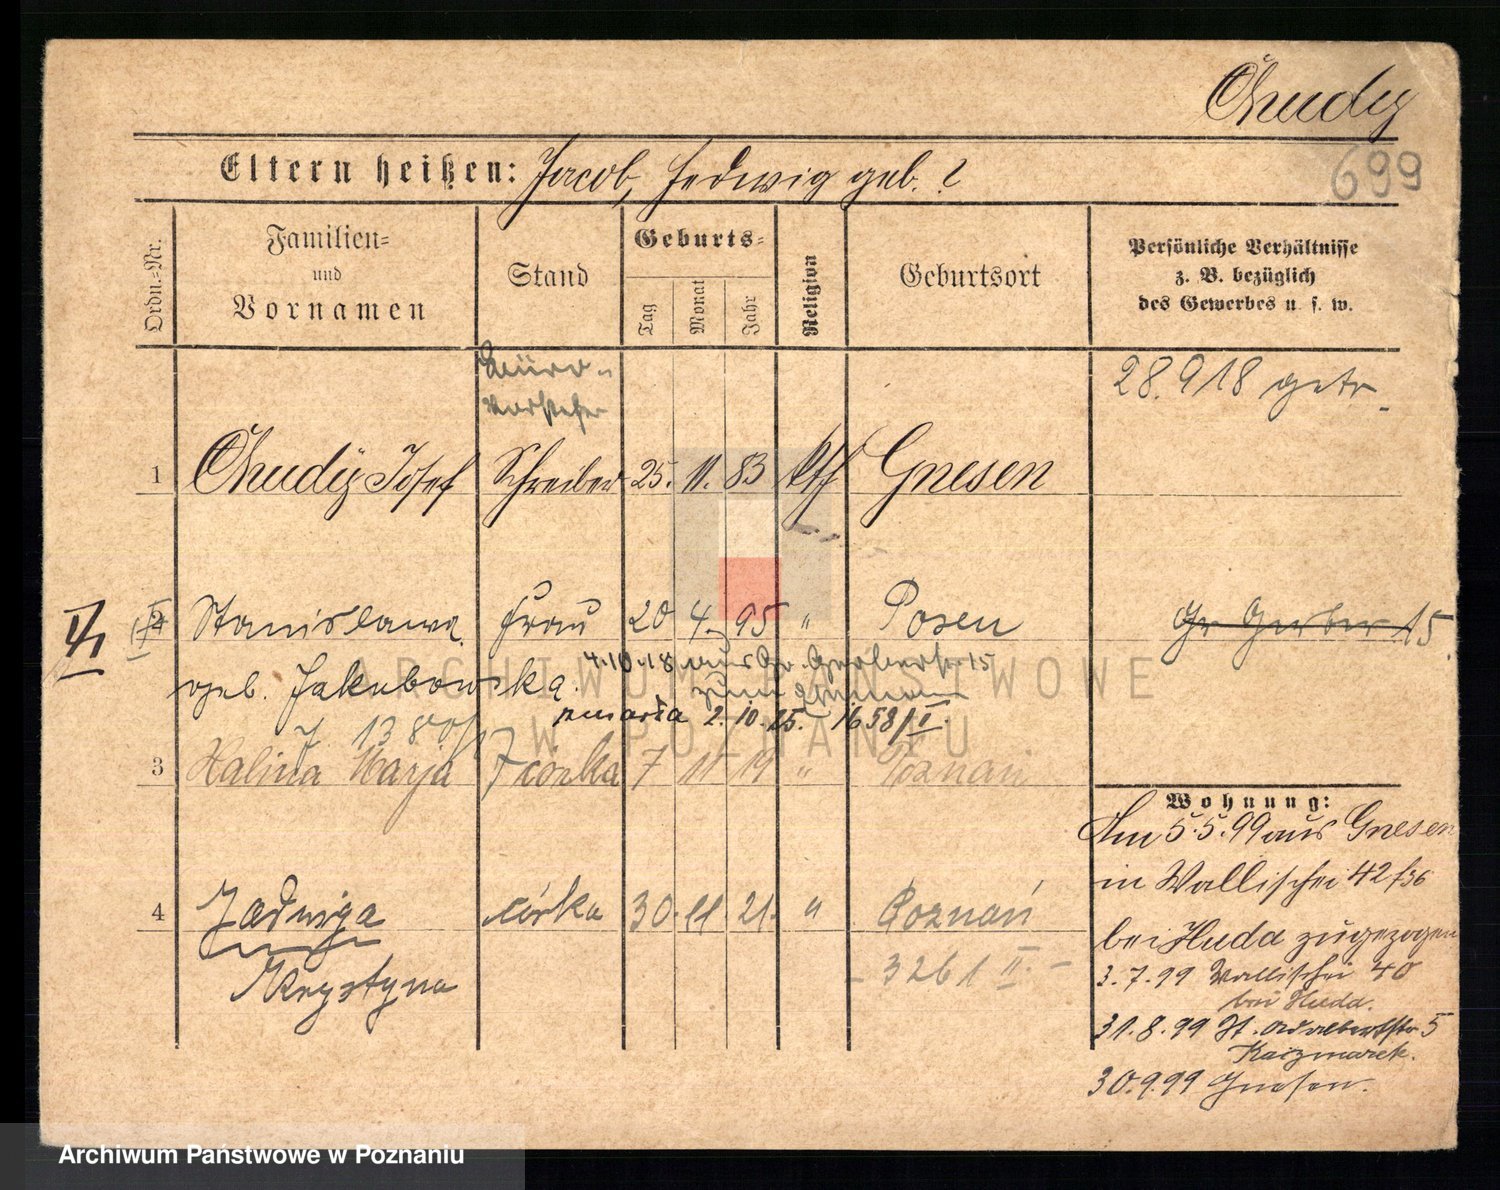 Chudy
699
Eltern heißen: Jacob, Hedwig geb. ?
Ordn.-Nr.
Familien-
und
Vornamen
Stand
Geburts-
Tag
Monat
Jahr
Religion
Geburtsort
Persönliche Verhältnisse
z. B. bezüglich
des Gewerbes u. s. w.
Büro-
vorsteher
28.9 18 getr.
1 Chudy Josef Schreiber 25. 11. 83 kth Gnesen
2 Stanislawa Frau 20 4. 95 " Posen
Gr Gerber 15.
4.10.18 aus Gr. Gerberstr. 15
geb. Jakubowska.
zum
zmarła 2. 10. 25. 1658/II.
1380/
3 Halina Marja córka 7 11 19 " Poznań
Wohnung:
Am 5.5.99 aus Gnesen
in Wallischei 42
4 Jadwiga córka 30. 11 21. " Poznań
bei Huda zugezogen
Krystyna
- 3261 II. -
3.7.99 Wallischei 40
bei Huda.
31.8.99 St. Adalbertstr 5
Kaczmarek.
30.9.99 Gnesen.
ARCHIWUM PAŃSTWOWE
W POZNANIU
Archiwum Państwowe w Poznaniu